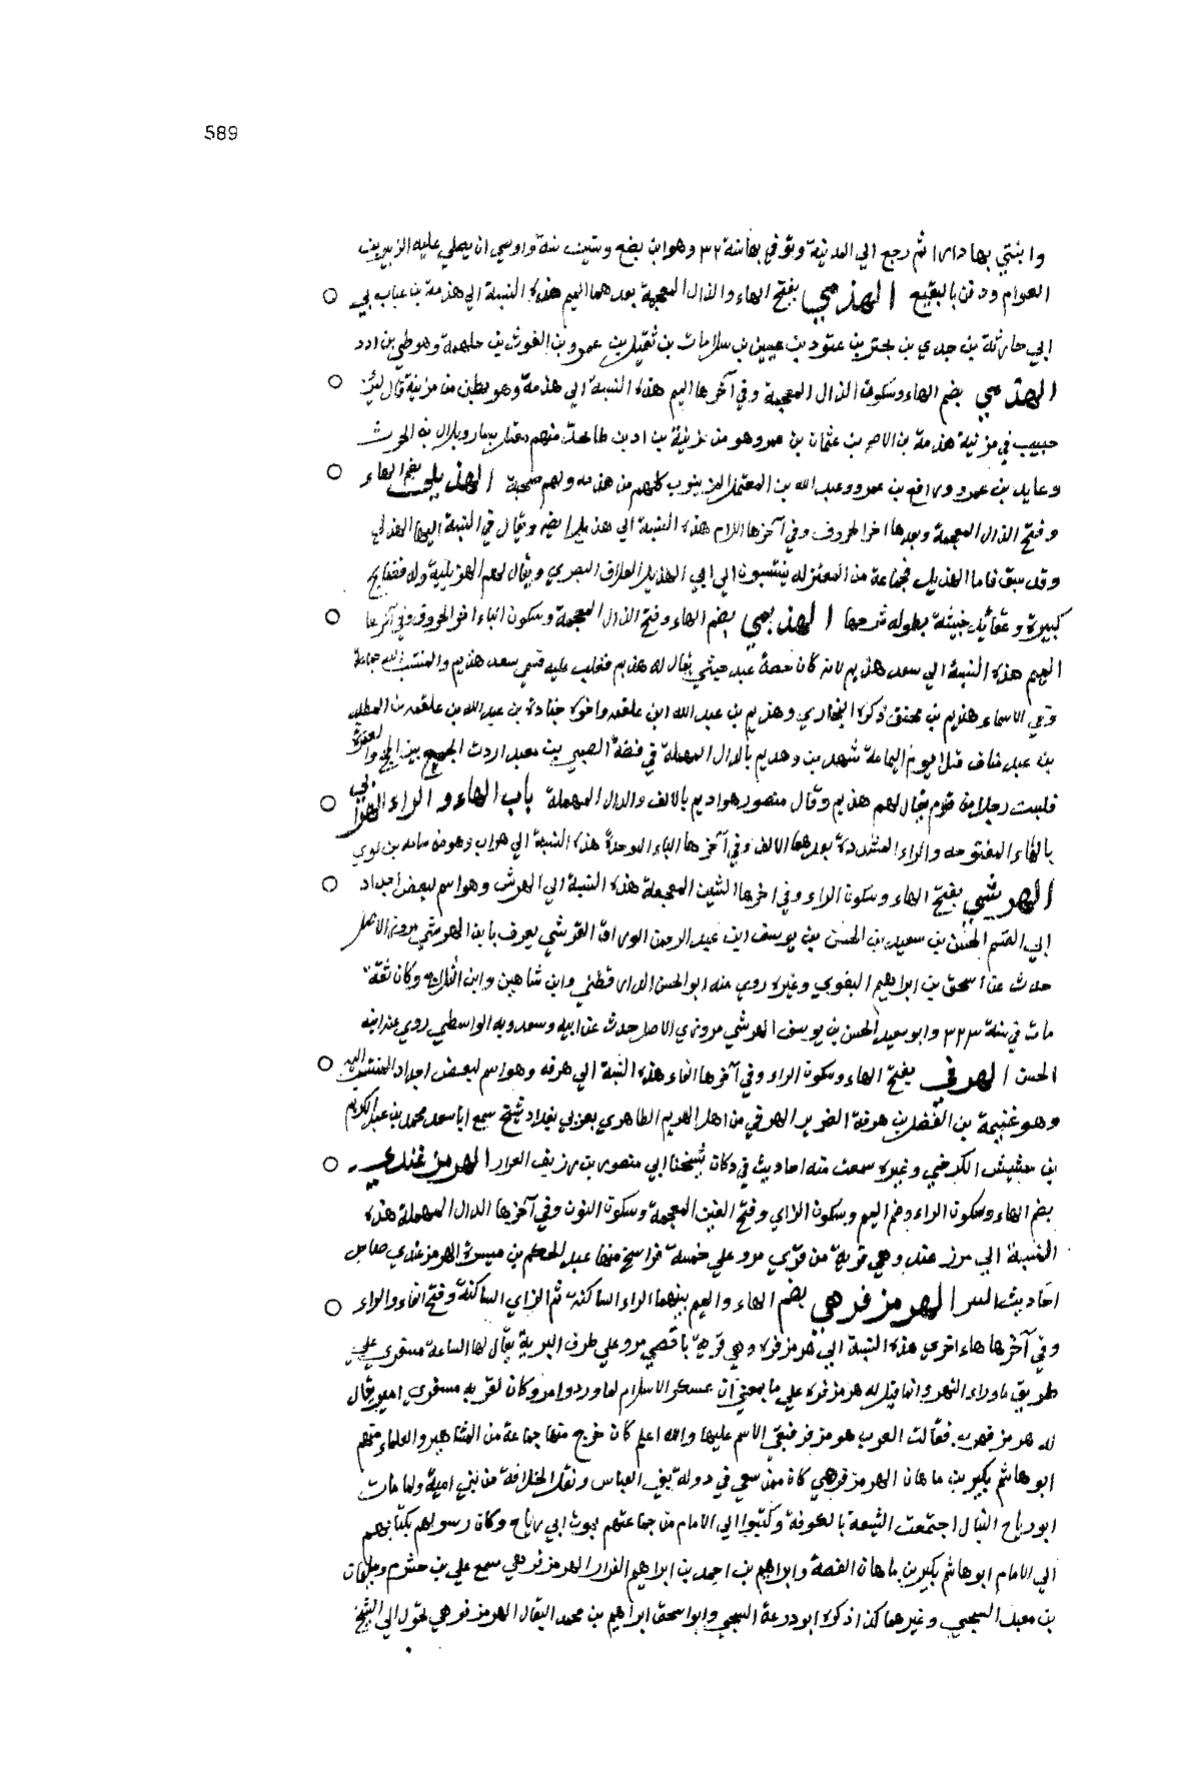 589
وابتني بها دارا ثم رجع الي المدينة وتوفي بها سنة ٣٢ وهو ابن بضع وستين سنة واوصي ان يصلي عليه الزبير بن
العوام ودفن بالبقيع الهذمي بفتح الهاء والذال المعجمة بعدهما الميم هذه النسبة الي هذمة بن عتاب بن
ابي حارثة بن جدي بن بحتر بن عتود بن عنين بن سلامان بن ثعل بن عمرو بن الغوث بن جلهمة وهو طي بن ادد
الهذمي بضم الهاء وسكون الذال المعجمة وفي آخرها الميم هذه النسبة الي هذمة وهو بطن من مزينة قال ابن
حبيب في مزينة هذمة بن الاطم بن عثمان بن عمرو وهو من مزينة بن اد بن طابخة منهم معقل بن يسار وبلال بن الحرث
وعايد بن عمرو ورافع بن عمرو وعبد الله بن المغفل المزينون كلهم من هذمه ولهم صحبة الهذيلي بضم الهاء
وفتح الذال المعجمة وبعدها اخر الحروف وفي آخرها اللام هذه النسبة الي هذيل ايضا ويقال في النسبة اليها الهذلي
وقد سبق فاما الهذيلي فجماعة من المعتزله ينتسبون الي ابي الهذيل العلاف البصري ويقال لهم الهذيلية وله فضايح
كبيرة وعقائد خبيثة يطول شرحها الهذيمي بضم الهاء وفتح الذال المعجمة وسكون الياء اخر الحروف وفي آخرها
الميم هذه النسبة الي سعد هذيم لانه كان حضنه عبد حبشي يقال له هذيم فغلب عليه فسمي سعد هذيم والمنتسب اليه جماعة
وفي الاسماء هذيم بن ذكره البخاري وهذيم بن عبد الله ابن علقمه واخوه جنادة بن عبد الله بن علقمه بن المطلب
بن عبد مناف قتلا يوم اليمامة شهد بن وهديم بالدال المهملة في قصة الصبي بن معبد اردت الجمع بين الحج والعمرة
فلبيت رجلا من قوم يقال لهم هذيم وقال منصور هو اديم بالالف والدال المهملة باب الهاء والراء الهرابي
بالهاء المفتوحه والراء المشددة بعدهما الالف وفي آخرها الباء الموحدة هذه النسبة الي هراب وهو من سامه بن لوي
الهرشي بفتح الهاء وسكون الراء وفي اخرها الشين المعجمة هذه النسبة الي الهرش وهو اسم لبعض اجداد
ابي القسم الحسن بن سعيد بن الحسن بن يوسف ابن عبد الرحمن الوراق القرشي يعرف بابن الهرشي مروزي الاصل
حدث عن اسحق بن ابراهيم البغوي وغيره روي عنه ابو الحسن الدارقطني وابن شاهين وابن الثلاج وكان ثقة
مات في سنة ٣٢٣ وابو سعيد الحسن بن يوسف الهرشي مروزي الاصل حدث عن ابيه وسعدويه الواسطي روي عنه ابنه
الحسن الهرفي بفتح الهاء وسكون الراء وفي آخرها الفاء هذه النسبة الي هرفه وهو اسم لبعض اجداد المنتسب اليه
وهو غنيمة بن الفضل بن هرفة الضرير الهرفي من اهل الحريم الطاهري بغربي بغداد شيخ سمع ابا سعد محمد بن عبد الكريم
بن حشيش الكرخي وغيره سمعت منه احاديث في دكان شيخنا ابي منصور بن زريق القزاز الهرمزغندي
بضم الهاء وسكون الراء وضم الميم وسكون الزاي وفتح الغين المعجمة وسكون النون وفي آخرها الدال المهملة هذه
النسبة الي هرمز غند وهي قرية من قري مرو علي خمسة فراسخ منها عبد الحكم بن ميسرة الهرمزغندي صاحب
احاديث الهرمزفرهي بضم الهاء والميم بينهما الراء الساكنه ثم الزاي الساكنة وفتح الفاء والراء
وفي آخرها هاء اخري هذه النسبة الي هرمزفره وهي قرية باقصي مرو علي طرف البرية يقال لها الساعة مسفري علي
طريق ماوراء النهر وانما قيل له هرمزفره علي ما بلغني ان عسكر الاسلام لما وردوا مرو وكان لقريه مسفري امير يقال
له هرمز فهرب فقالت العرب هرمز فر فبقي الاسم عليها والله اعلم كان خرج منها جماعة من المشاهير والعلماء منهم
ابو هاشم بكير بن ماهان الهرمزفرهي كان ممن سعي في دولة بني العباس ونقل الخلافة من بني امية ولما مات
ابو رباح النبال اجتمعت الشيعة بالكوفة وكتبوا الي الامام من جماعتهم بموت ابي رباح وكان رسولهم بكتابهم
الي الامام ابو هاشم بكير بن ماهان القصة وابراهيم بن احمد بن ابراهيم القزاز الهرمزفرهي سمع علي بن خشرم وسليمان
بن معبد السنجي وغيرهما كذا ذكره ابو زرعة السنجي وابو اسحق ابراهيم بن محمد البقال الهرمزفرهي تحول الي الشيخ